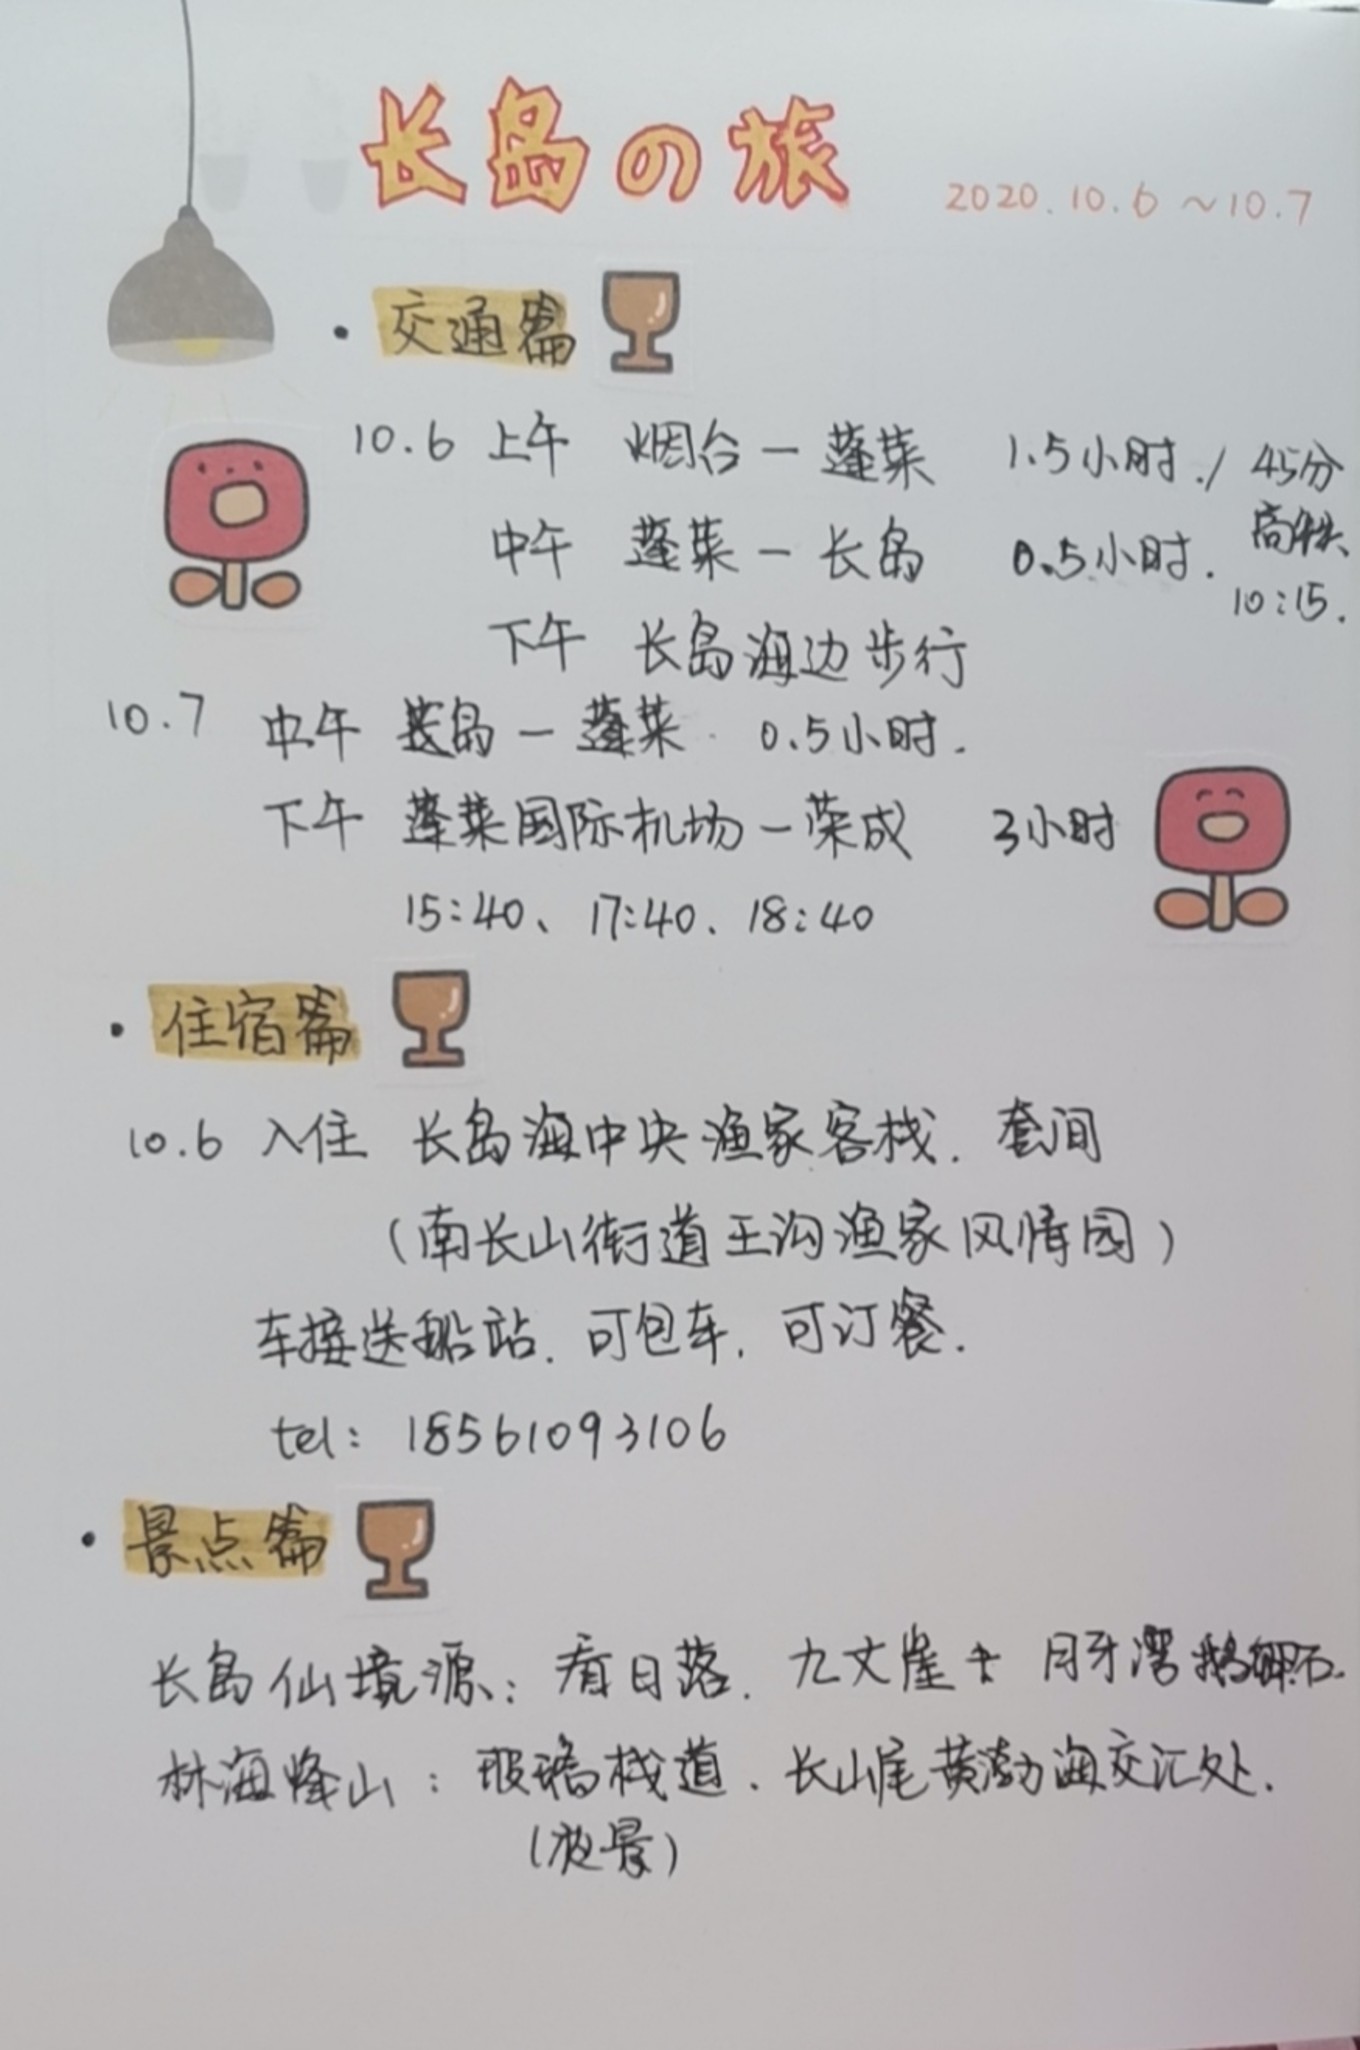 长岛の旅 2020.10.6~10.7
· 交通篇
10.6 上午 烟台—蓬莱 1.5小时./45分
高铁
中午 蓬莱—长岛 0.5小时.
10:15.
下午 长岛海边步行
10.7 中午 长岛—蓬莱 0.5小时.
下午 蓬莱国际机场—荣成 3小时
15:40、17:40、18:40
· 住宿篇
10.6 入住 长岛海中央渔家客栈. 套间
(南长山街道王沟渔家风情园)
车接送船站. 可包车, 可订餐.
tel: 18561093106
· 景点篇
长岛仙境源: 看日落. 九丈崖+月牙湾鹅卵石.
林海烽山: 玻璃栈道. 长山尾黄渤海交汇处.
(夜景)